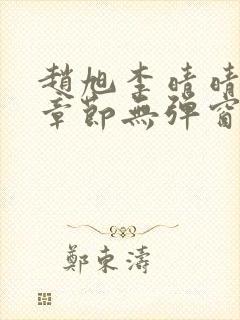 趙旭李晴晴
章節無彈窗
鄭東濤